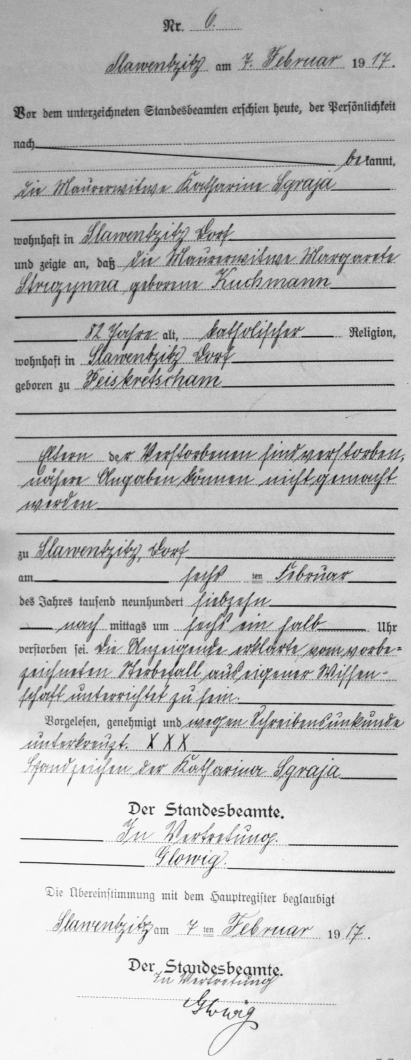 Nr. 6.
Slawentzitz am 7. Februar 1917.
Vor dem unterzeichneten Standesbeamten erschien heute, der Persönlichkeit
nach
bekannt,
die Maurerwitwe Katharine Sgraja
wohnhaft in Slawentzitz Dorf
und zeigte an, daß die Maurerwitwe Margarete
Strozynna geborene Kuchmann
82 Jahre alt, katholischer Religion,
wohnhaft in Slawentzitz Dorf
geboren zu Peiskretscham
Eltern der Verstorbenen sind verstorben,
nähere Angaben können nicht gemacht
werden
zu Slawentzitz, Dorf
am sechsten Februar
des Jahres tausend neunhundert siebzehn
nach mittags um sechs ein halb Uhr
verstorben sei. Die Anzeigende erklärte, vom vorbe-
zeichneten Sterbefall aus eigener Wissen-
schaft unterrichtet zu sein.
Vorgelesen, genehmigt und wegen Schreibensunkunde
unterkreuzt. X X X
Handzeichen der Katharina Sgraja
Der Standesbeamte.
In Vertretung.
Glowig.
Die Übereinstimmung mit dem Hauptregister beglaubigt
Slawentzitz am 7 ten Februar 1917.
Der Standesbeamte.
In Vertretung
Glowig